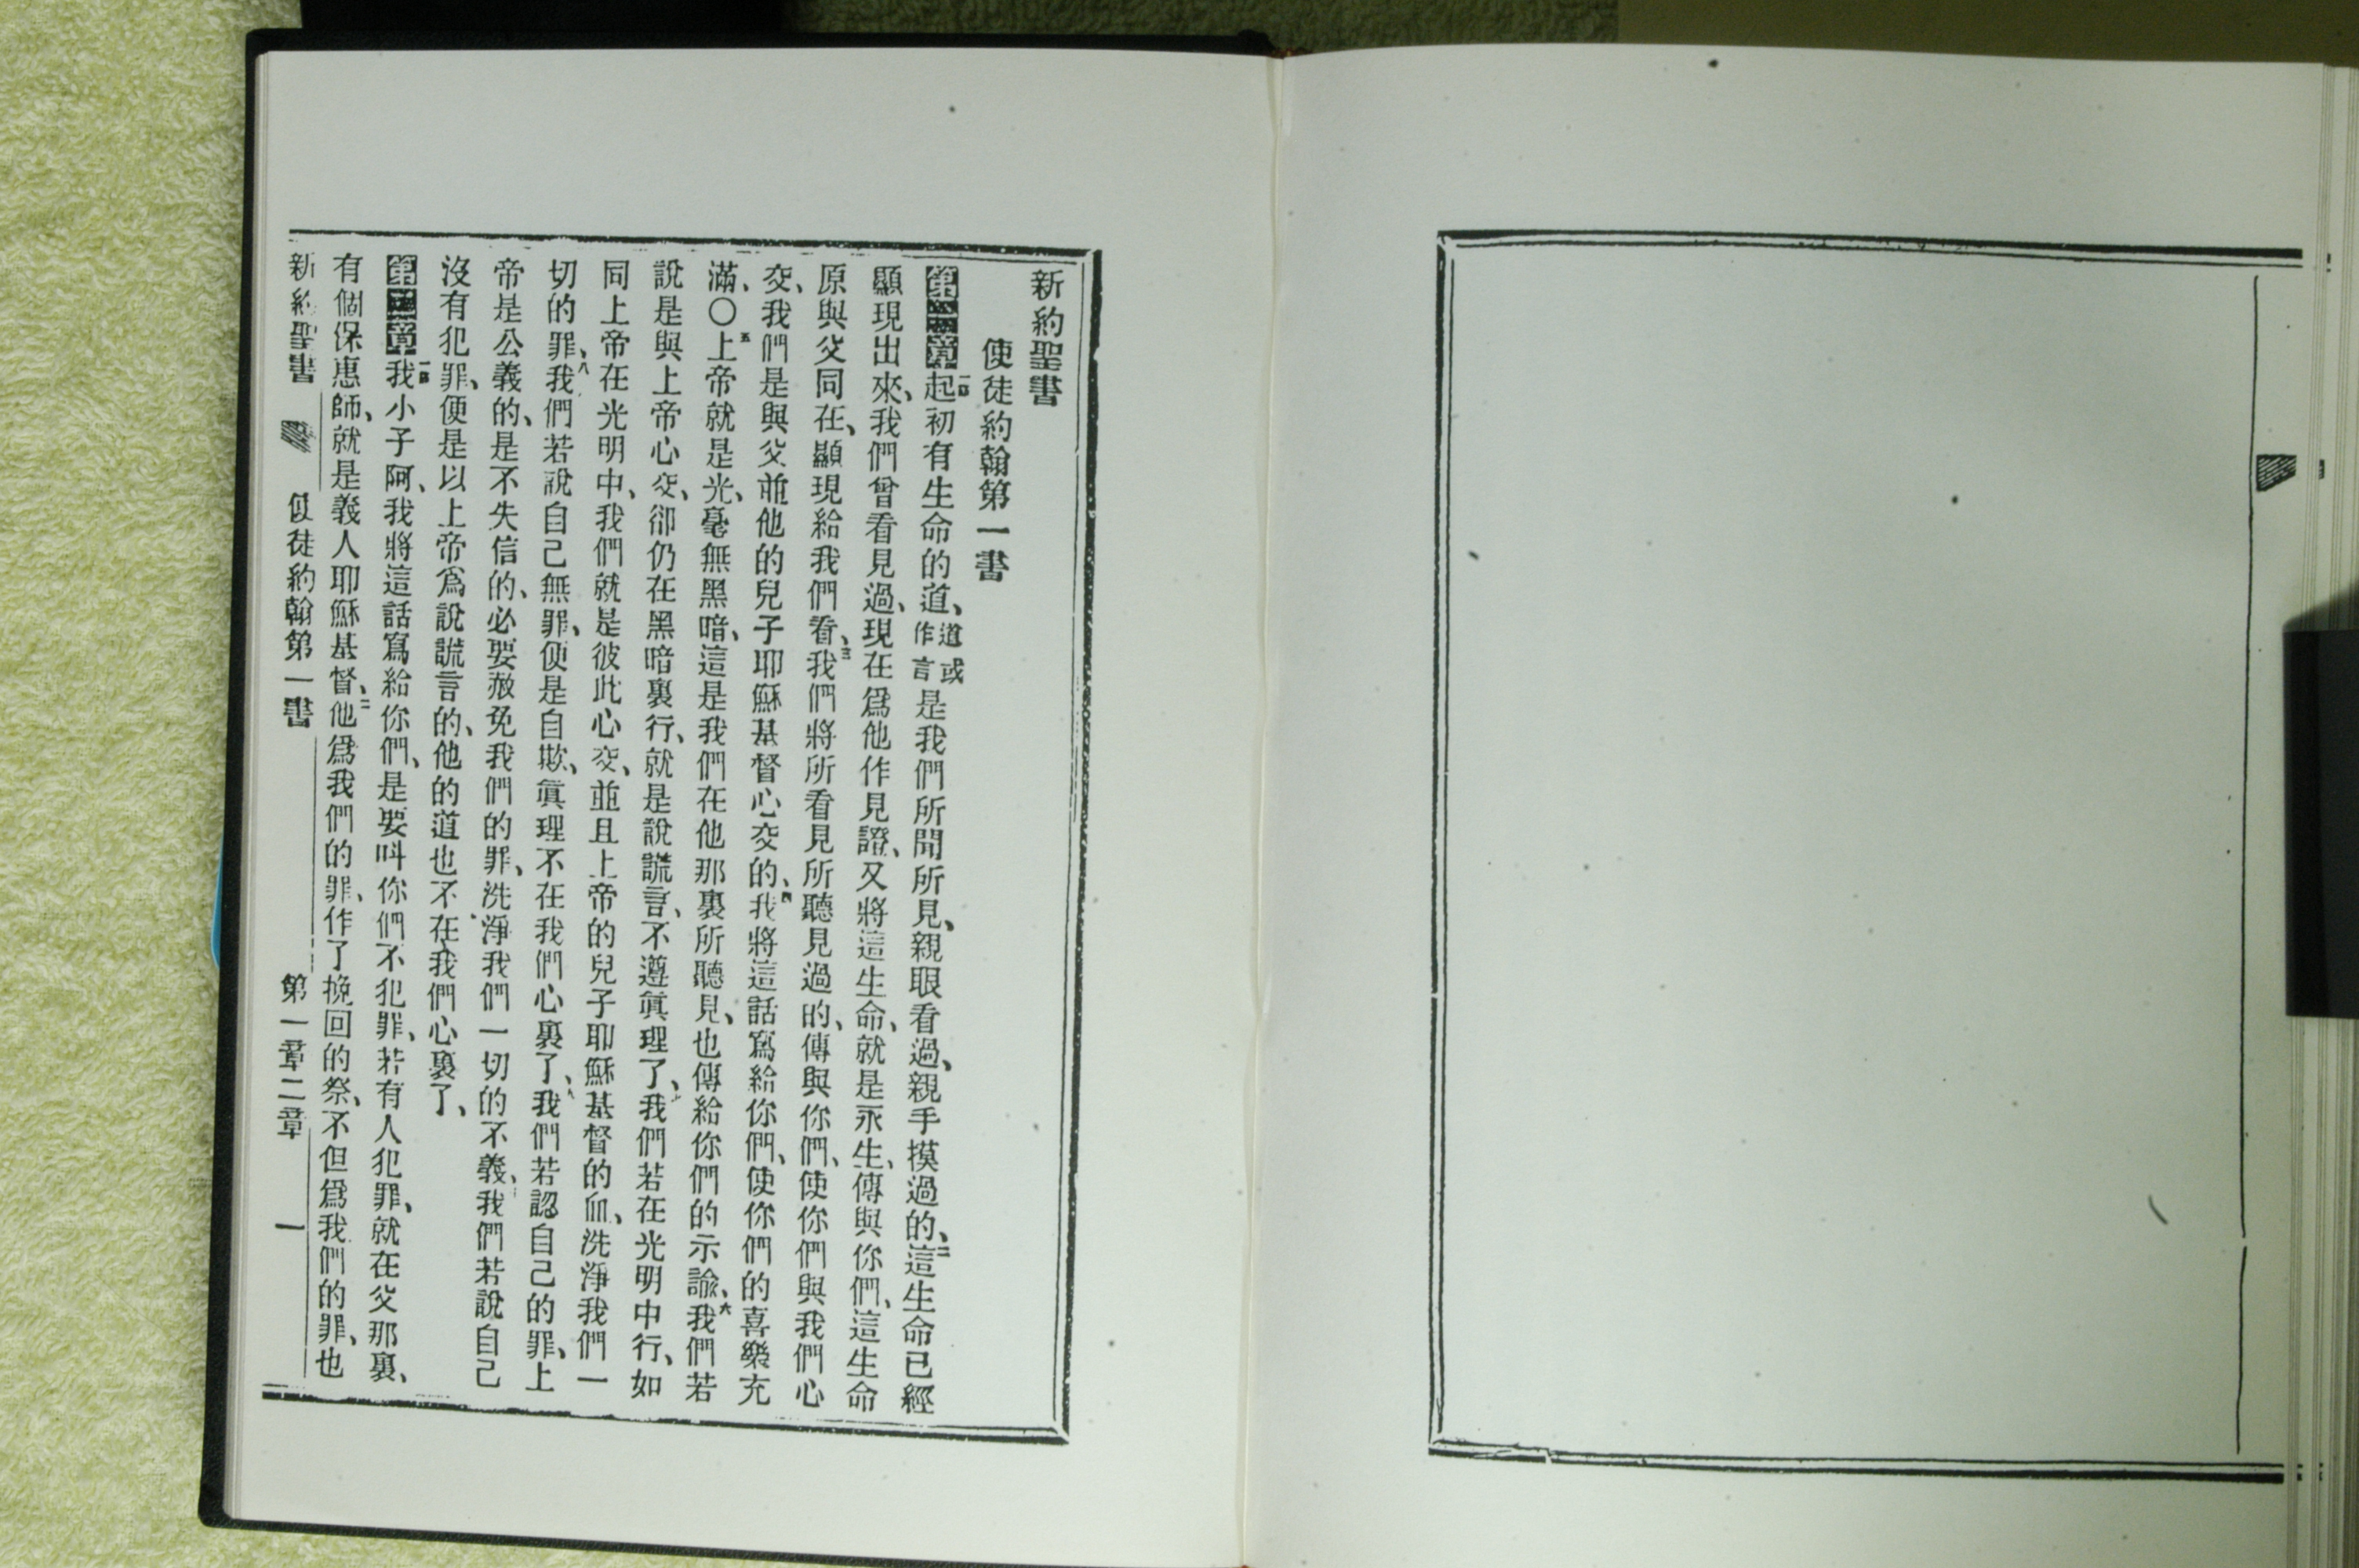 新約聖書
使徒約翰第一書
第一章一節起初有生命的道、道或作言是我們所聞所見、親眼看過、親手摸過的、二這生命已經
顯現出來、我們曾看見過、現在爲他作見證、又將這生命、就是永生、傳與你們、這生命
原與父同在、顯現給我們看、三我們將所看見所聽見過的、傳與你們、使你們與我們心
交、我們是與父並他的兒子耶穌基督心交的、四我將這話寫給你們、使你們的喜樂充
滿、〇五上帝就是光、毫無黑暗、這是我們在他那裏所聽見、也傳給你們的示諭、六我們若
說是與上帝心交、卻仍在黑暗裏行、就是說謊言、不遵眞理了、七我們若在光明中行、如
同上帝在光明中、我們就是彼此心交、並且上帝的兒子耶穌基督的血、洗淨我們一
切的罪、八我們若說自己無罪、便是自欺、眞理不在我們心裏了、九我們若認自己的罪、上
帝是公義的、是不失信的、必要赦免我們的罪、洗淨我們一切的不義、十我們若說自己
沒有犯罪、便是以上帝爲說謊言的、他的道也不在我們心裏了、
第二章一節我小子阿、我將這話寫給你們、是要叫你們不犯罪、若有人犯罪、就在父那裏、
有個保惠師、就是義人耶穌基督、二他爲我們的罪、作了挽回的祭、不但爲我們的罪、也
新約聖書 使徒約翰第一書 第一章二章 一